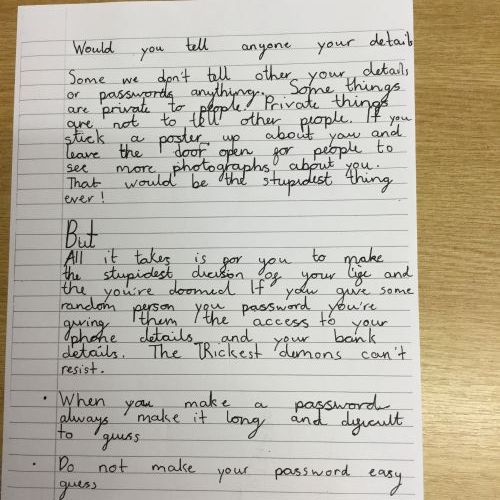 Would you tell anyone your details
Some we don't tell other your details
or passwords anything. Some things
are private to people. Private things
are not to tell other people. If you
stick a poster up about you and
leave the door open for people to
see more photographs about you.
That would be the stupidest thing
ever!
But
All it takes is for you to make
the stupidest decision of your life and
the you're doomed If you give some
random person you password you're
giving them the access to your
phone details and your bank
details. The TRickest demons can't
resist.
• When you make a password
always make it long and difficult
to guess
• Do not make your password easy
guess